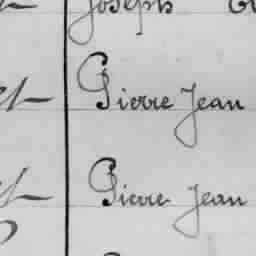 Joseph
Pierre Jean
Pierre Jean